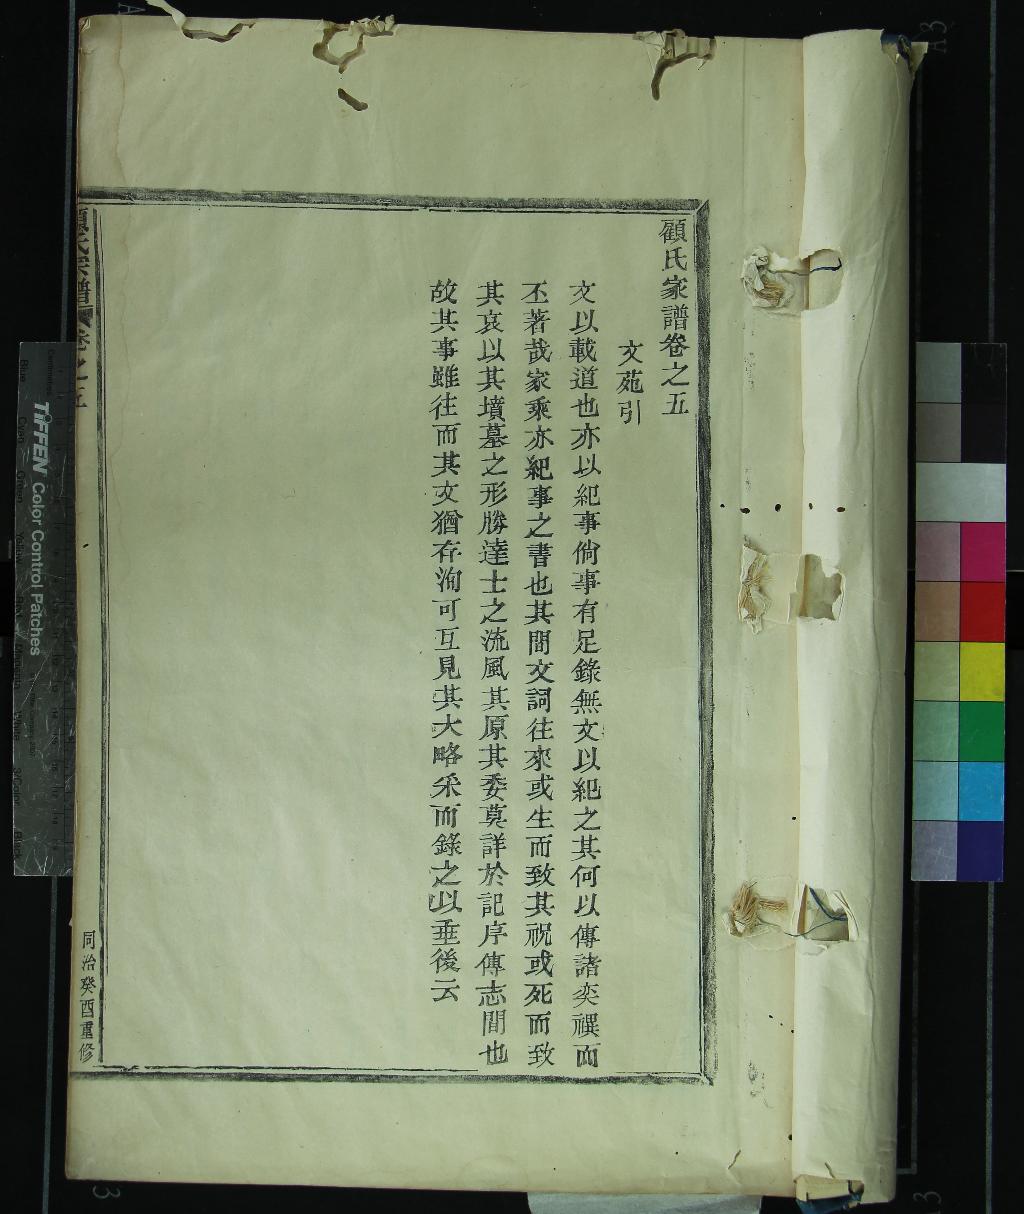 顧氏家譜卷之五
文苑引
文以載道也亦以紀事倘事有足錄無文以紀之其何以傳諸奕禩而
丕著哉家乘亦紀事之書也其間文詞往來或生而致其祝或死而致
其哀以其墳墓之形勝達士之流風其原其委莫詳於記序傳志間也
故其事雖往而其文猶存洵可互見其大略采而錄之以垂後云
顧氏宗譜 卷之五
同治癸酉重修
TIFFEN Color Control Patches